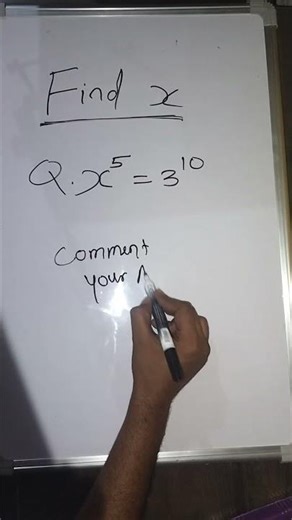 Find x
Q. x⁵ = 3¹⁰
Comment
your A